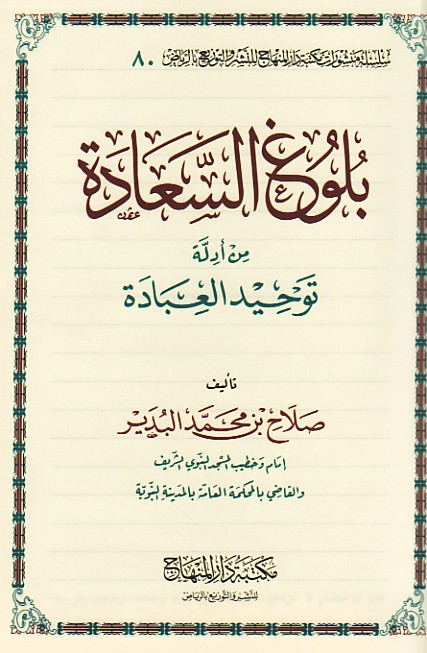 سلسلة منشورات مكتبة دار المنهاج للنشر والتوزيع بالرياض ٨٠
بُلُوغُ السَّعَادَة
مِنْ أَدِلَّة
تَوْحِيْد العِبَادَة
تأليف
صَلَاح بْن مُحَمَّد البُدَيْر
إمَام وَخطيب المسجد النبوي الشريف
والقاضي بالمحكمة العامة بالمدينة النبوية
مكتبة دار المنهاج
للنشر والتوزيع بالرياض